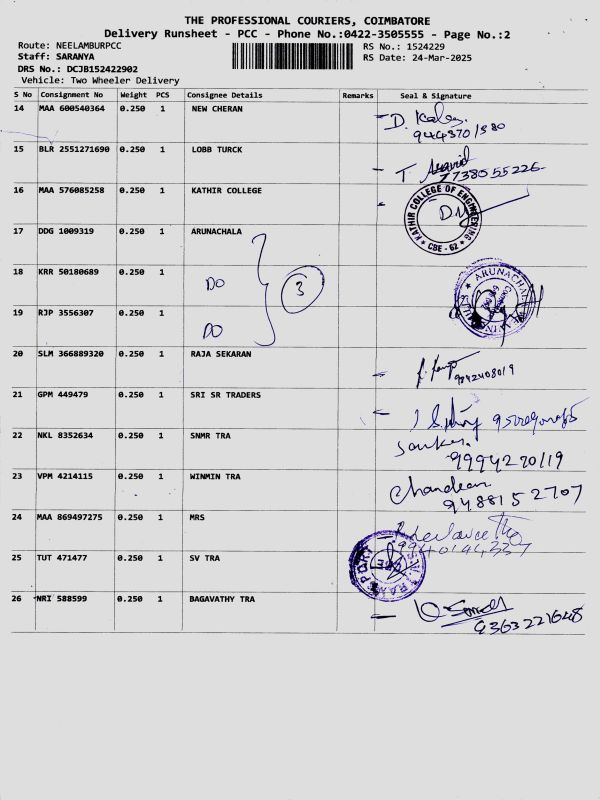 THE PROFESSIONAL COURIERS, COIMBATORE
Delivery Runsheet - PCC - Phone No.:0422-3505555 - Page No.:2
Route: NEELAMBURPCC RS No.: 1524229
Staff: SARANYA RS Date: 24-Mar-2025
DRS No.: DCJB152422902
Vehicle: Two Wheeler Delivery
S No Consignment No Weight PCS Consignee Details Remarks Seal & Signature
14 MAA 600540364 0.250 1 NEW CHERAN
15 BLR 2551271690 0.250 1 LOBB TURCK
T 7738055226
16 MAA 576085258 0.250 1 KATHIR COLLEGE
KATHIR COLLEGE OF ENGINEERING
CBE - 62
17 DDG 1009319 0.250 1 ARUNACHALA
18 KRR 50180689 0.250 1
DO 3
19 RJP 3556307 0.250 1
DO
20 SLM 366889320 0.250 1 RAJA SEKARAN
21 GPM 449479 0.250 1 SRI SR TRADERS
22 NKL 8352634 0.250 1 SNMR TRA
9994220119
23 VPM 4214115 0.250 1 WINMIN TRA
9488152707
24 MAA 869497275 0.250 1 MRS
9940194337
25 TUT 471477 0.250 1 SV TRA
26 NRI 588599 0.250 1 BAGAVATHY TRA
9363221648